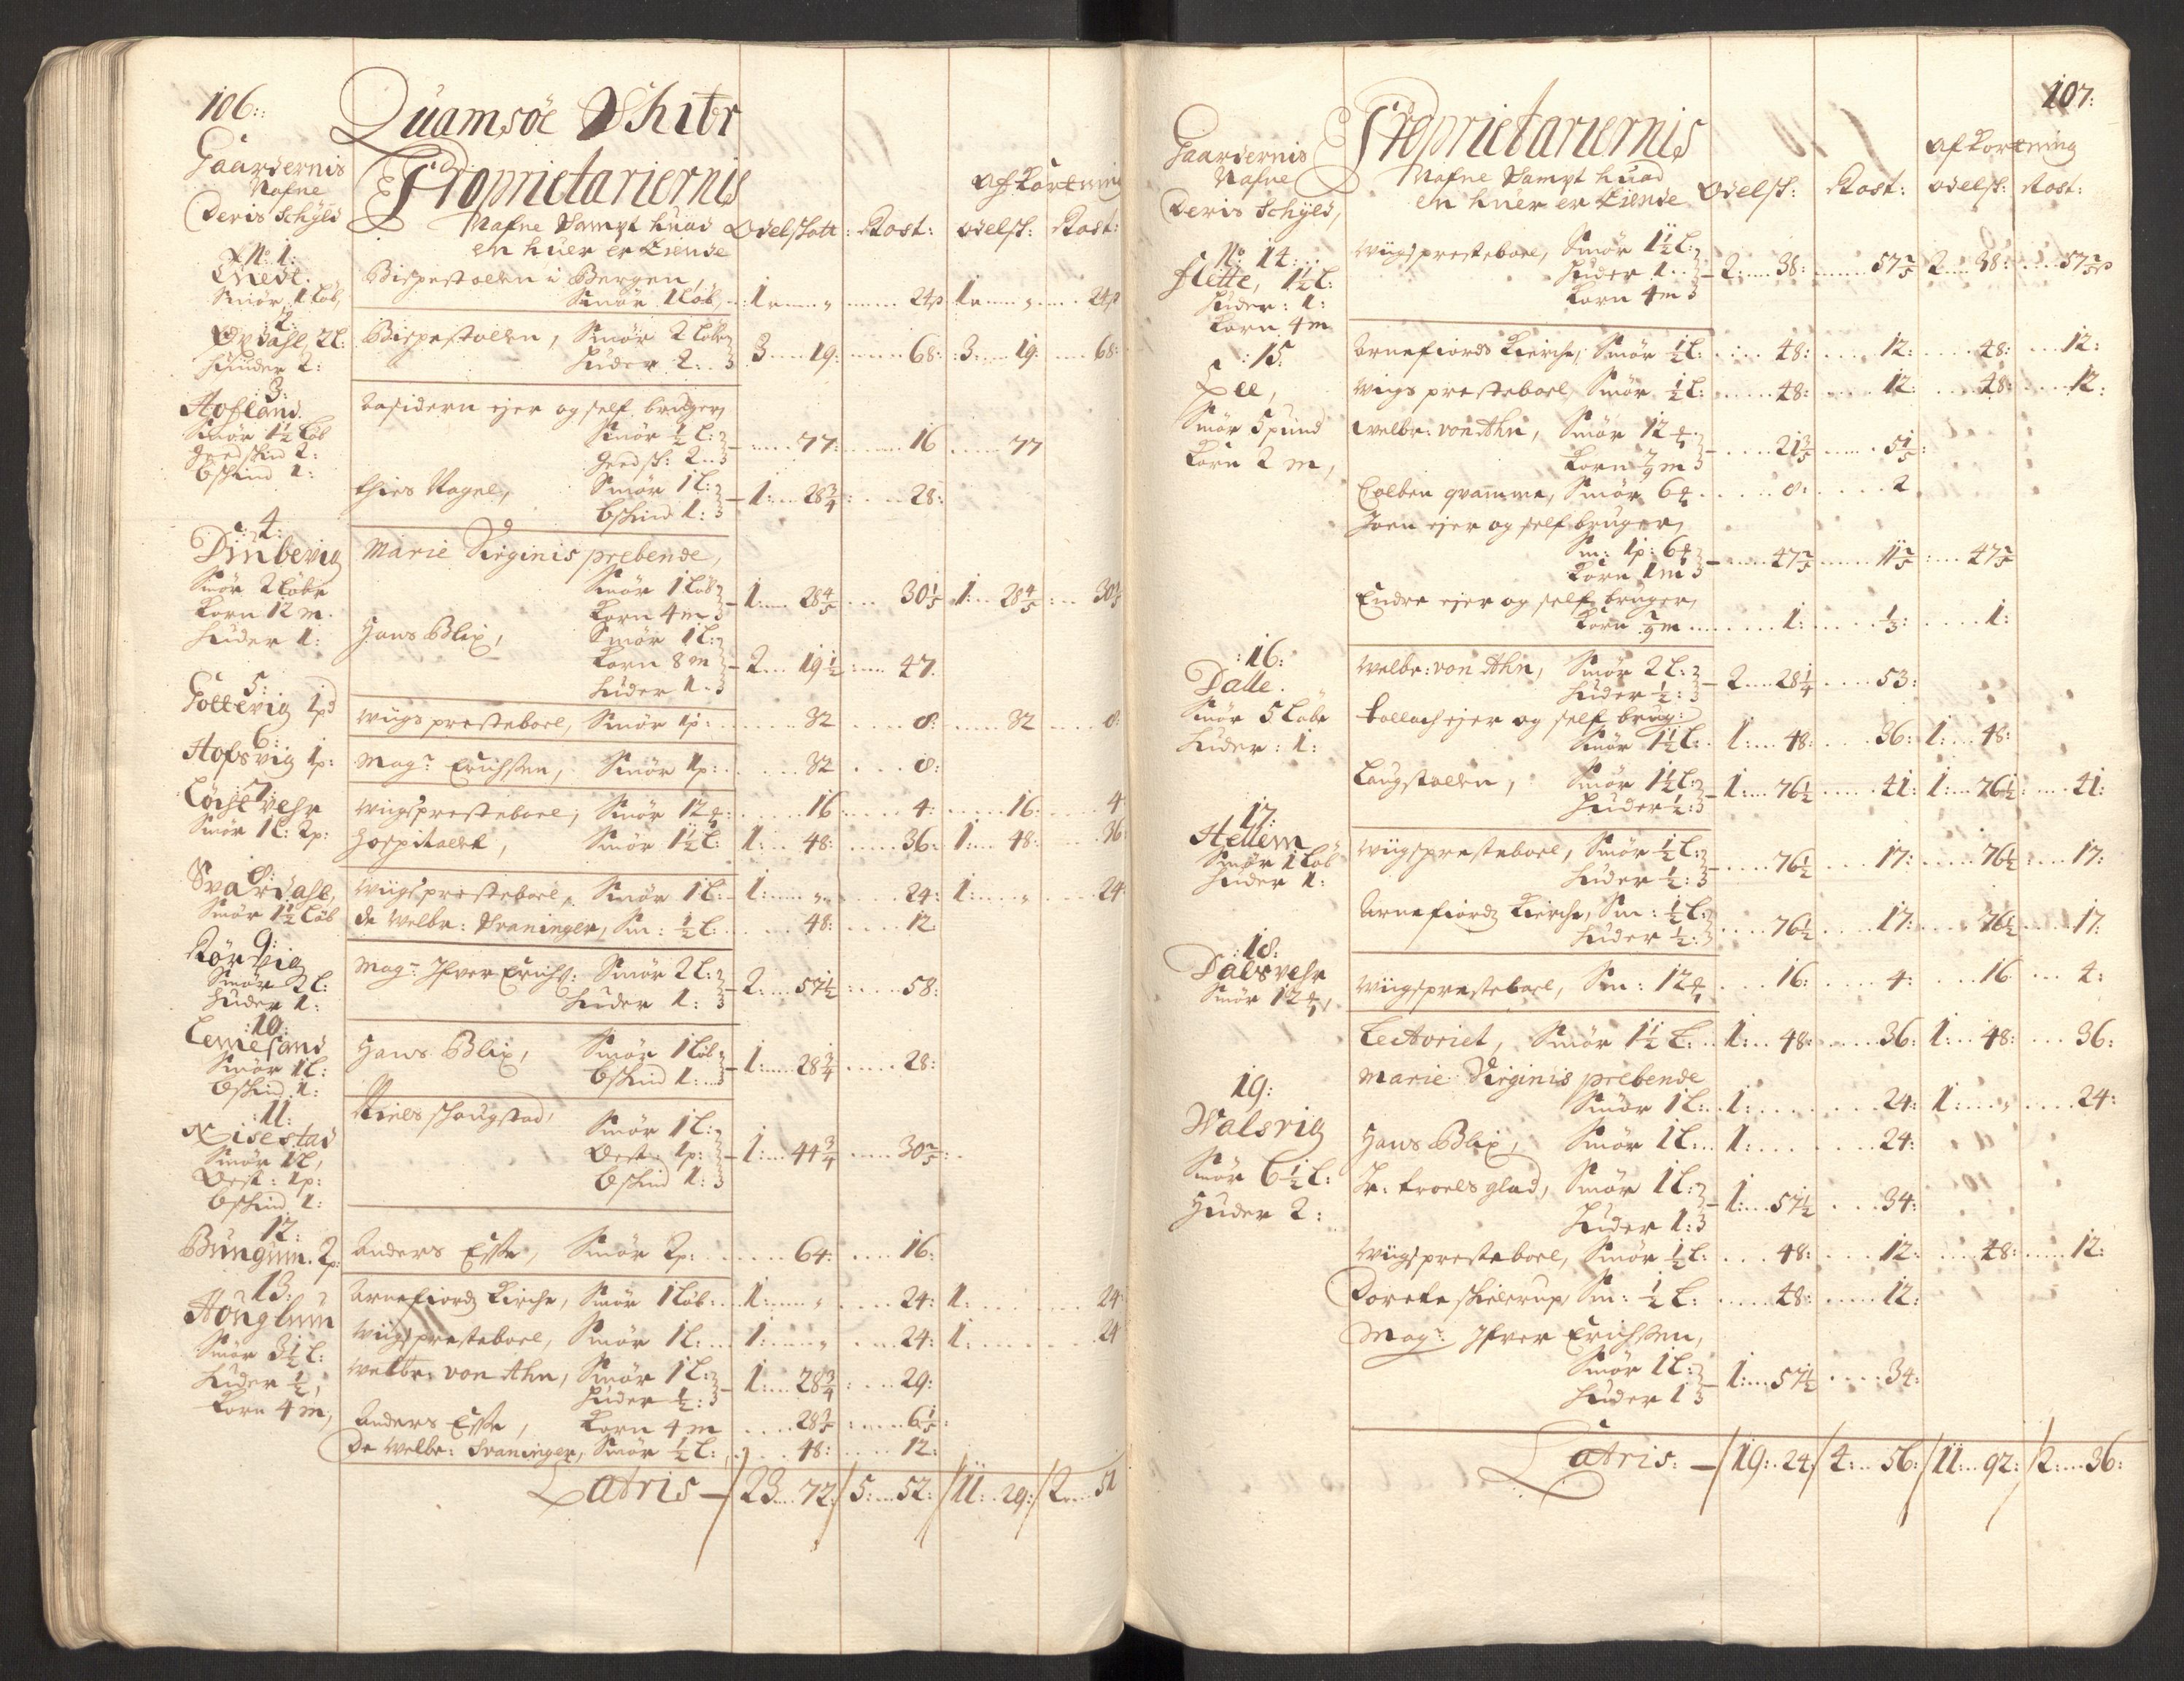 106:
Quamsöe Schibr
Gaardernis
Nafne
Deris Schyld
Proprietariernis
Nafne Sampt huad
en huer er Eiende
Odelskatt: Rost:
afkortning
odelsk: Rost:
No 1:
Smör 1 Löb,
Bispestolen i Bergen,
Smör 1 Löb, 1 „ 24 β 1 „ 24 β
2:
Opdahl, 2 L:
Huuder 2:
Bispestolen, Smör 2 Löber
Huder 2: 3 19: 68: 3: 19: 68:
3:
Hofland.
Smör 1½ Löb
giedskind 2:
bskind 1:
ejer og self bruger,
Smör ½ L:
giedsk: 2 77: 16 77
thies Nagel, Smör 1 L:
bskind 1: 1: 28¾: 28:
4:
Dinbevig
Smör 2 Löber
Korn 12 m.
Huder 1:
Marie Virginis prebende,
Smör 1 Löb
Korn 4 m 1: 28⅘ 30⅕ 1: 28⅘: 30⅕
Hans Blix, Smör 1 L:
Korn 8 m
Huder 1. 2 19½: 47.
5:
Gottevig 1 pd
Wiigs presteboel, Smör 1 p: 32 8: 32 8:
6:
Hofsvig 1 p:
Magr Erichsen, Smör 1 p: 32 8:
7:
Smör 1 L: 2 p:
Wiigspresteboel, Smör 12 16: 4: 16: 4
Hospitalet, Smör 1½ L: 1: 48: 36: 1: 48: 36:
8:
Svardahl,
Smör 1½ Löb
Wiigspresteboel, Smör 1 L: 1: „ 24: 1: „ 24
de Welbr: Svaninger, Sm: ½ L: 48: 12
9:
Rörvig
Smör 2 L:
Huder 1:
Magr Ifver Erichs: Smör 2 L:
Huder 1: 2: 57½: 58:
10:
Lemesand
Smör 1 L:
bskind 1:
Hans Blix, Smör 1 Löb
bskind 1: 1: 28¾ 28:
11:
Nisestad
Smör 1 L,
Ost: 1 p:
bskind 1:
Niels schougstad,
Smör 1 L:
Ost: 1 p:
bskind 1: 1: 44¾ 30⅖:
12:
Bungum. 2 p:
Anders Esse, Smör 2 p: 64: 16:
13:
Houglum
Smör 3½ L:
Huder ½,
Korn 4 m,
Arnefiords Kirche, Smör 1 Löb: 1: „ 24: 1: 24
Wiigspresteboel, Smör 1 L: 1: „ 24: 1: 24
Welbr: von Ahn, Smör 1 L:
Huder ½: 1: 28¾: 29:
Anders Esse, Korn 4 m 28⅘: 6⅕:
De Welbr: Svaninger, Smör ½ L: 48: 12:
Latris — 23 72 / 5: 52: / 11: 29: / 2 51
107:
Gaardernis
Nafne
Deris Schyld,
Proprietariernis
Nafne Sampt huad
en huer er Eiende
Odelsk: Rost:
afkortning
odelsk: Rost:
No 14:
flette, 1½ L:
Huder: 1:
Korn 4 m
Wiigspresteboel, Smör 1½ L:
Huder 1.
Korn 4 m 2: 38: 57⅖ 2 38: 57⅖ β
15:
Smör 5 pund
Korn 2 m,
Arnefiords Kierche, Smör ½ L: 48: 12: 48: 12:
Wiigs presteboel, Smör ½ L: 48: 12: 48: 12:
Welbr: von Ahn, Smör 12
Korn m 21⅗ 5⅕:
Colben qvamme, Smör 6 8: 2
Joen ejer og self bruger,
Sm: 1 p: 6
Korn 1 m 47⅖ 11⅖: 47⅖
Endre ejer og self bruger,
Korn m 1: ⅓: 1:
16:
Dalle.
Smör 5 Löber
Huder: 1:
Welbr: von Ahn, Smör 2 L:
Huder ½: 2 28¼ 53:
Tollach ejer og self brug:
Smör 1½ L: 1: 48: 36: 1: 48:
Laugstolen, Smör 1½ L:
Huder ½: 1: 76½ 41: 1: 76½: 41:
17:
Hellem
Smör 1 Löb
Huder 1:
Wiigspresteboel, Smör ½ L:
Huder ½: 76½ 17: 76½: 17:
Arnefiords Kierche, Sm: ½ L:
Huder ½: 76½ 17: 76½ 17:
18:
Dalsvehr
Smör 12,
Wiigspresteboel, Sm: 12 16: 4: 16 4:
19:
Walsvig
Smör 6½ L:
Huder 2:
Lectoriet, Smör 1½ L: 1: 48: 36: 1: 48: 36:
Marie Virginis prebende
Smör 1 L: 1: 24: 1: „ 24:
Hans Blix, Smör 1 L: 1: 24:
Hr: troels glad, Smör 1 L:
Huder 1: 1: 57½ 34:
Wiigspresteboel, Smör ½ L: 48: 12: 48: 12:
Dorete schielerup, Sm: ½ L: 48: 12:
Magr Ifver Erichsen,
Smör 1 L:
Huder 1 1: 57½ 34:
Latris: — 19: 24 / 4: 56: / 11: 92: / 2: 36: